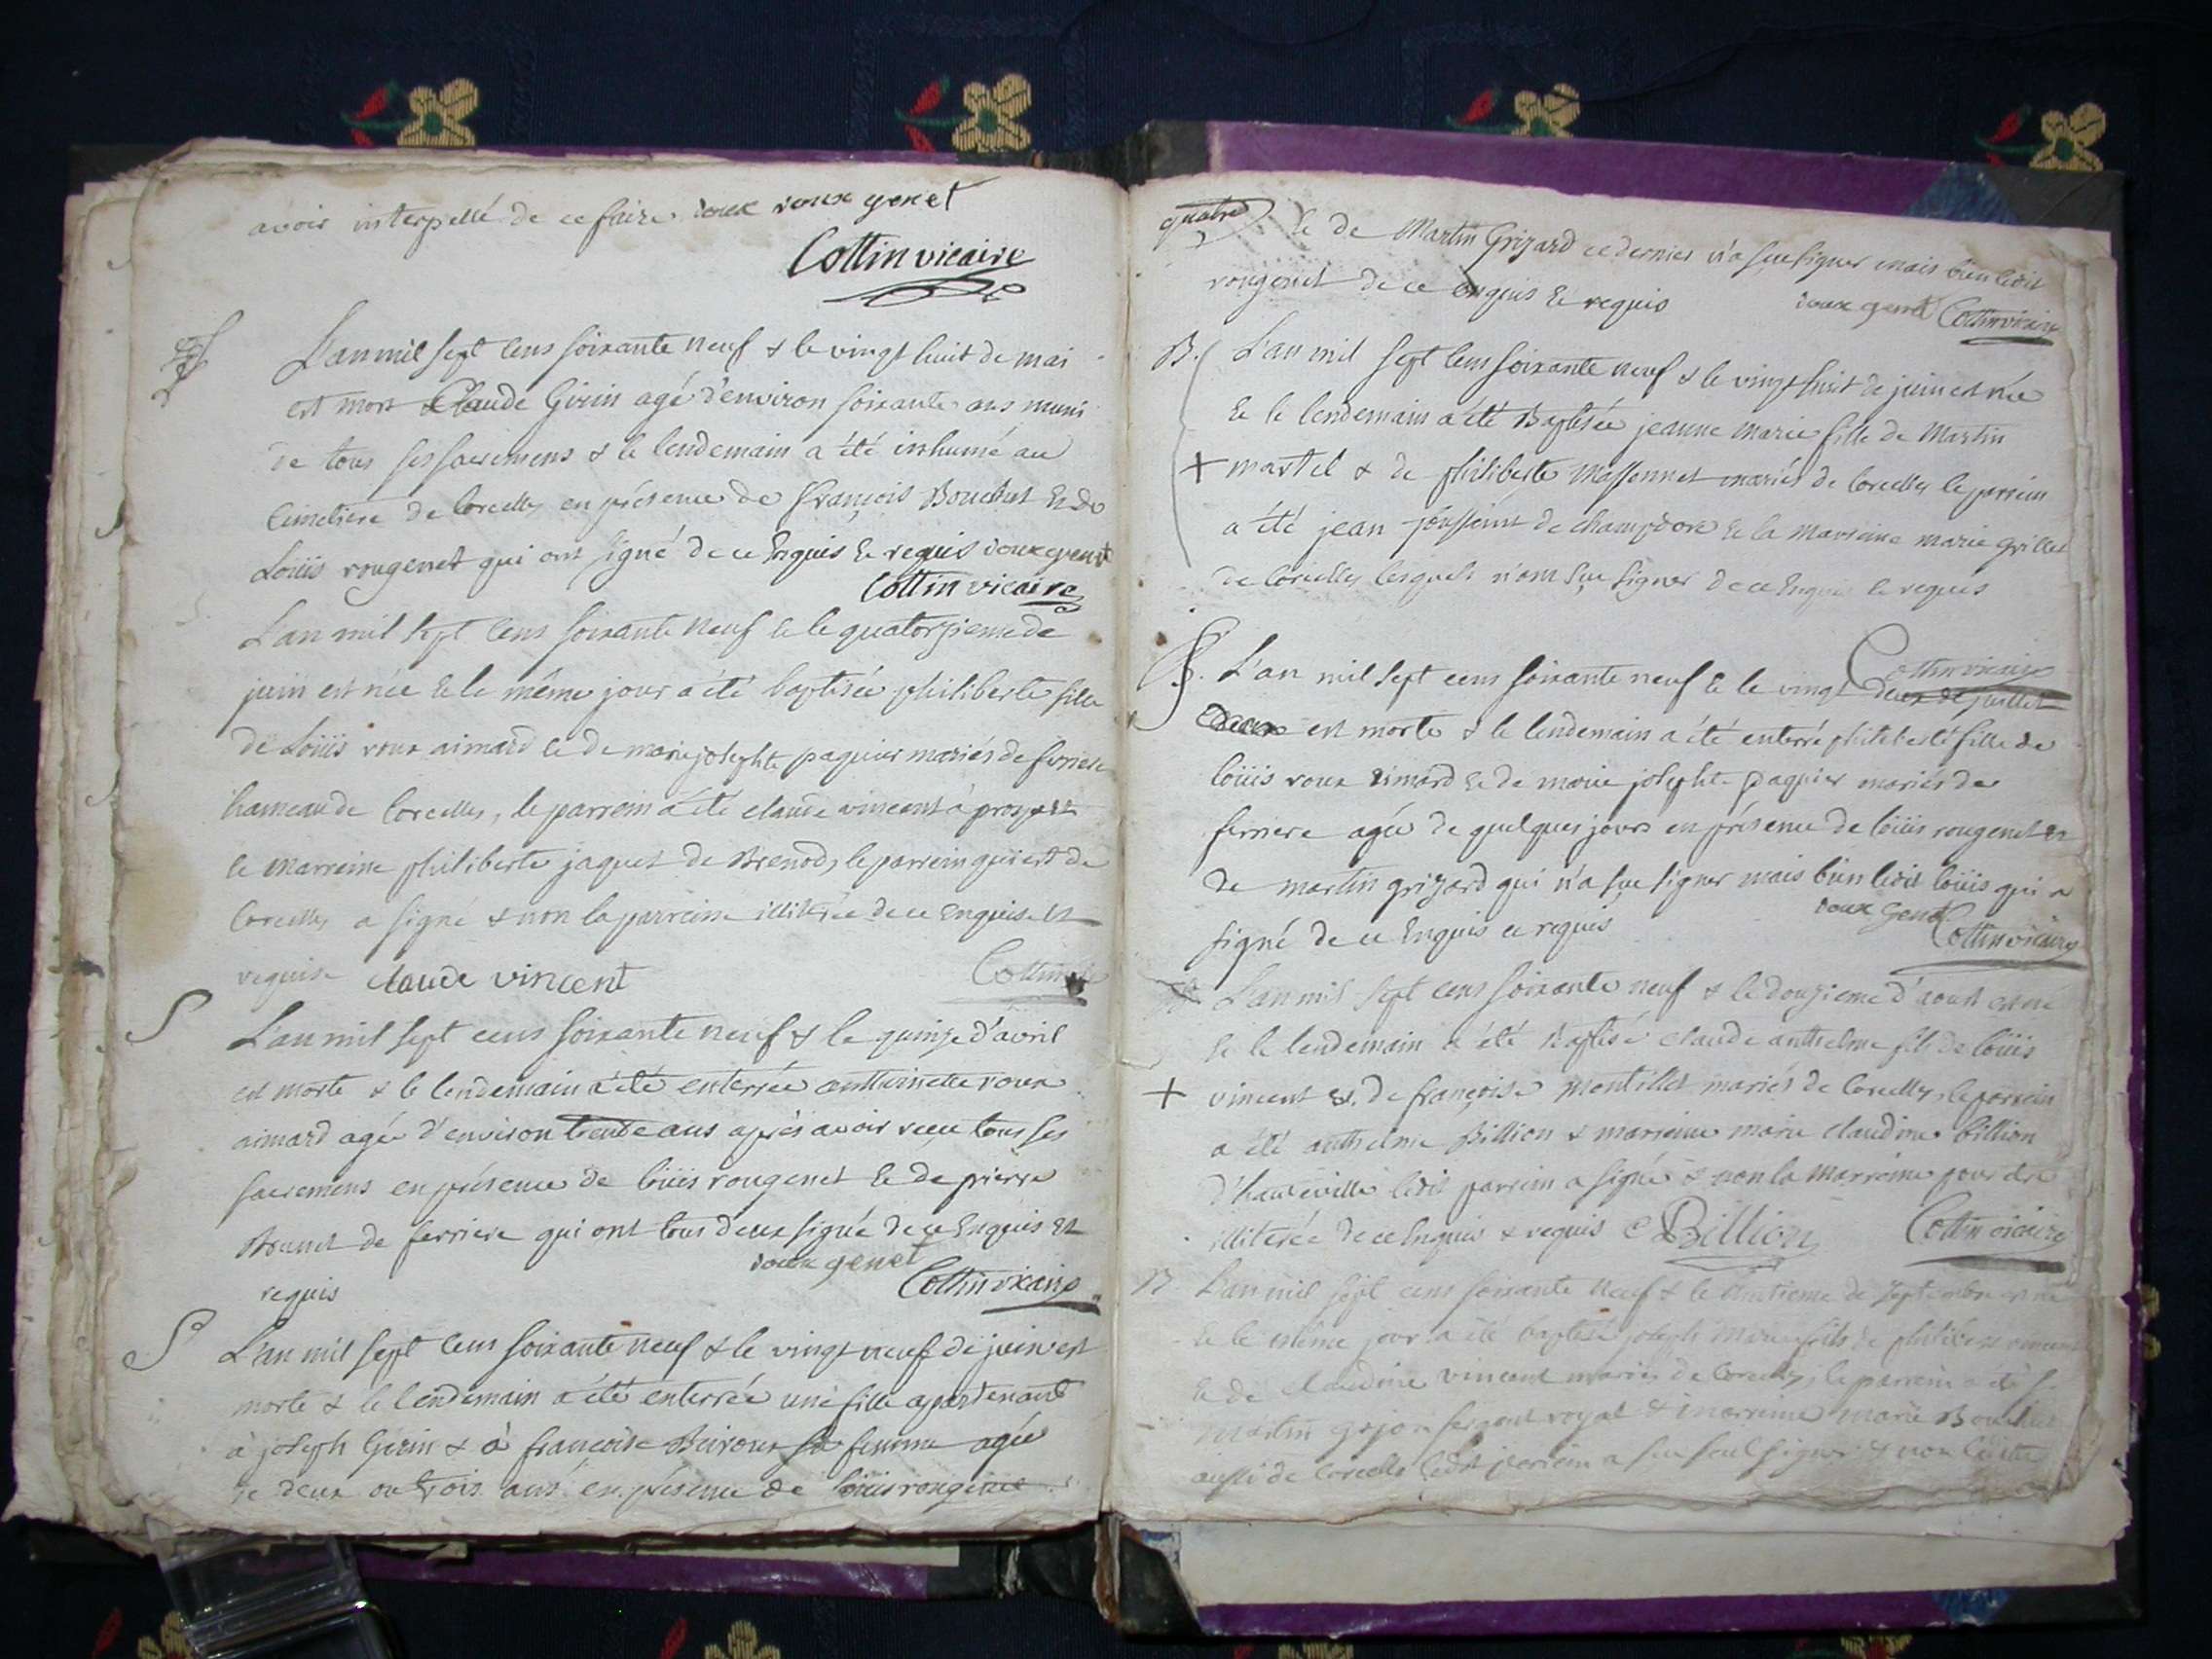 avoir interpellé de ce faire roux roux genet
Cottin vicaire
S
L'an mil sept cens soixante neuf & le vingt huit de mai
est mort Claude Girin agé d'environ soixante ans muni
de tous ses sacremens & le lendemain a été inhumé au
cimetiere de Corcelles en présence de François Bouchet et de
Loüis rougenet qui ont signé de ce enquis et requis roux genet
Cottin vicaire
L'an mil sept cens soixante neuf et le quatorzieme de
juin est née et le même jour a été baptisée philiberte fille
de Loüis roux aimard et de marie josephte paquier mariés de ferriere
hameau de Corcelles, le parrein a été claude vincent à prosper
et marreine philiberte jaquet de Brenod, le parrein qui est de
Corcelles a signé & non la parreine illiterée de ce enquise et
requise claude vincent
Cottin
S
L'an mil sept cens soixante neuf & le quinze d'avril
est morte & le lendemain a été enterrée anthoinette roux
aimard agée d'environ trente ans après avoir reçu tous ses
sacremens en présence de loüis rougenet et de pierre
Brunet de ferriere qui ont tous deux signé de ce enquis et
roux genet
requis
Cottin vicaire
S
L'an mil sept cens soixante neuf & le vingt neuf de juin est
morte & le lendemain a été enterrée une fille appartenante
à joseph Girin & à françoise Beiroux sa femme agée
de deux ou trois ans en présence de loüis rougenet
quatre
et de Martin Grizard ce dernier n'a sçu signer mais bien ledit
rougenet de ce enquis et requis roux genet Cottin vicaire
B.
L'an mil sept cens soixante neuf & le vingt huit de juin est née
et le lendemain a été Baptisée jeanne marie fille de Martin
+ martel & de philiberte Massonnet mariés de Corcelles le parrein
a été jean de champdore et la marreine marie grillet
de Corcelles lesquels n'ont sçu signer de ce enquis et requis
Cottin vicaire
S. L'an mil sept cens soixante neuf et le vingt deux de juillet
est morte & le lendemain a été enterré philiberte fille de
loüis roux aimard et de marie josephte paquier mariés de
ferriere agée de quelques jours en présence de loüis rougenet et
de martin grizard qui n'a sçu signer mais bien ledit loüis qui a
signé de ce enquis et requis roux genet
Cottin vicaire
L'an mil sept cens soixante neuf & le douzieme d'aoust est né
et le lendemain a été Baptisé claude anthelme fils de loüis
+ vincent & de françoise montillet mariés de Corcelles, le parrein
a été anthelme Billion & marreine marie claudine billion
d'hauteville ledit parrein a signé & non la marreine pour être
illiterée de ce enquis & requis Billion
Cottin vicaire
B
L'an mil sept cens soixante neuf & le huitieme de septembre est né
et le même jour a été baptisé joseph Marie fils de philibert vincent
et de claudine vincent mariés de Corcelles, le parrein a été
Martin gojon sergent royal & marreine marie Bouchet
aussi de Corcelles ledit parrein a sçu seul signer & non ladite